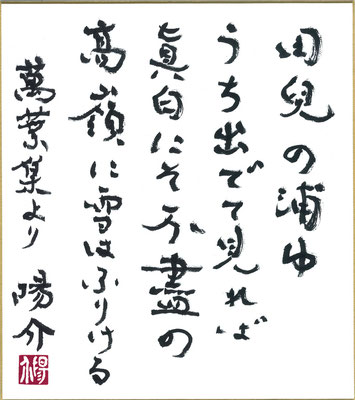 田兒の浦ゆ
うち出でて見れば
眞白にそ不盡の
高嶺に雪はふりける
萬葉集より 陽介
陽